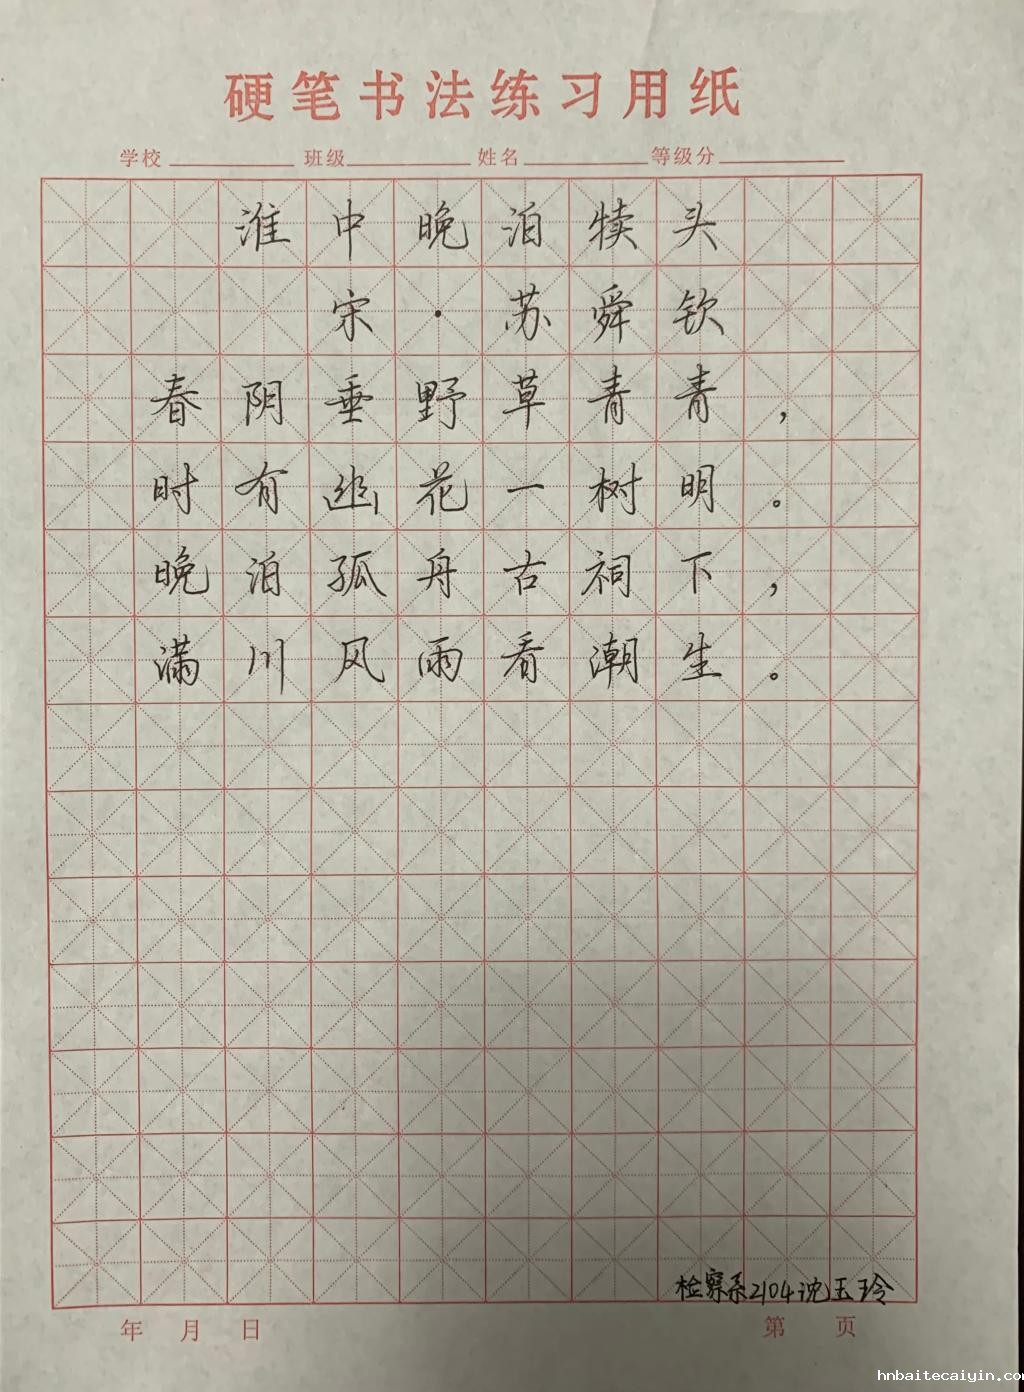 硬笔书法练习用纸
学校 班级 姓名 等级分
淮中晚泊犊头
宋·苏舜钦
春阴垂野草青青，
时有幽花一树明。
晚泊孤舟古祠下，
满川风雨看潮生。
检察系2104沈玉玲
年 月 日 第 页
hnbaitecaiyin.com